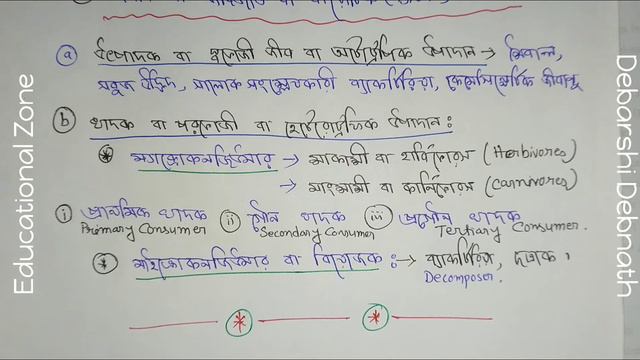 ⓐ উৎপাদক বা স্বভোজী জীব বা অটোট্রফিক উপাদান → শৈবাল,
সবুজ উদ্ভিদ, আলোক সংশ্লেষকারী ব্যাকটিরিয়া, কেমোসিন্থেটিক জীবাণু
ⓑ খাদক বা পরভোজী বা হেটেরোট্রফিক উপাদান :
* ম্যাক্রোকনজিউমার → শাকাশী বা হার্বিভোরস (Herbivores)
→ মাংসাশী বা কার্নিভোরস (Carnivores)
i প্রাথমিক খাদক ii গৌণ খাদক iii প্রগৌণ খাদক
Primary Consumer Secondary Consumer Tertiary Consumer.
* মাইক্রোকনজিউমার বা বিয়োজক :→ ব্যাকটিরিয়া, ছত্রাক,
Decomposer.
* *
Educational Zone
Debarshi Debnath